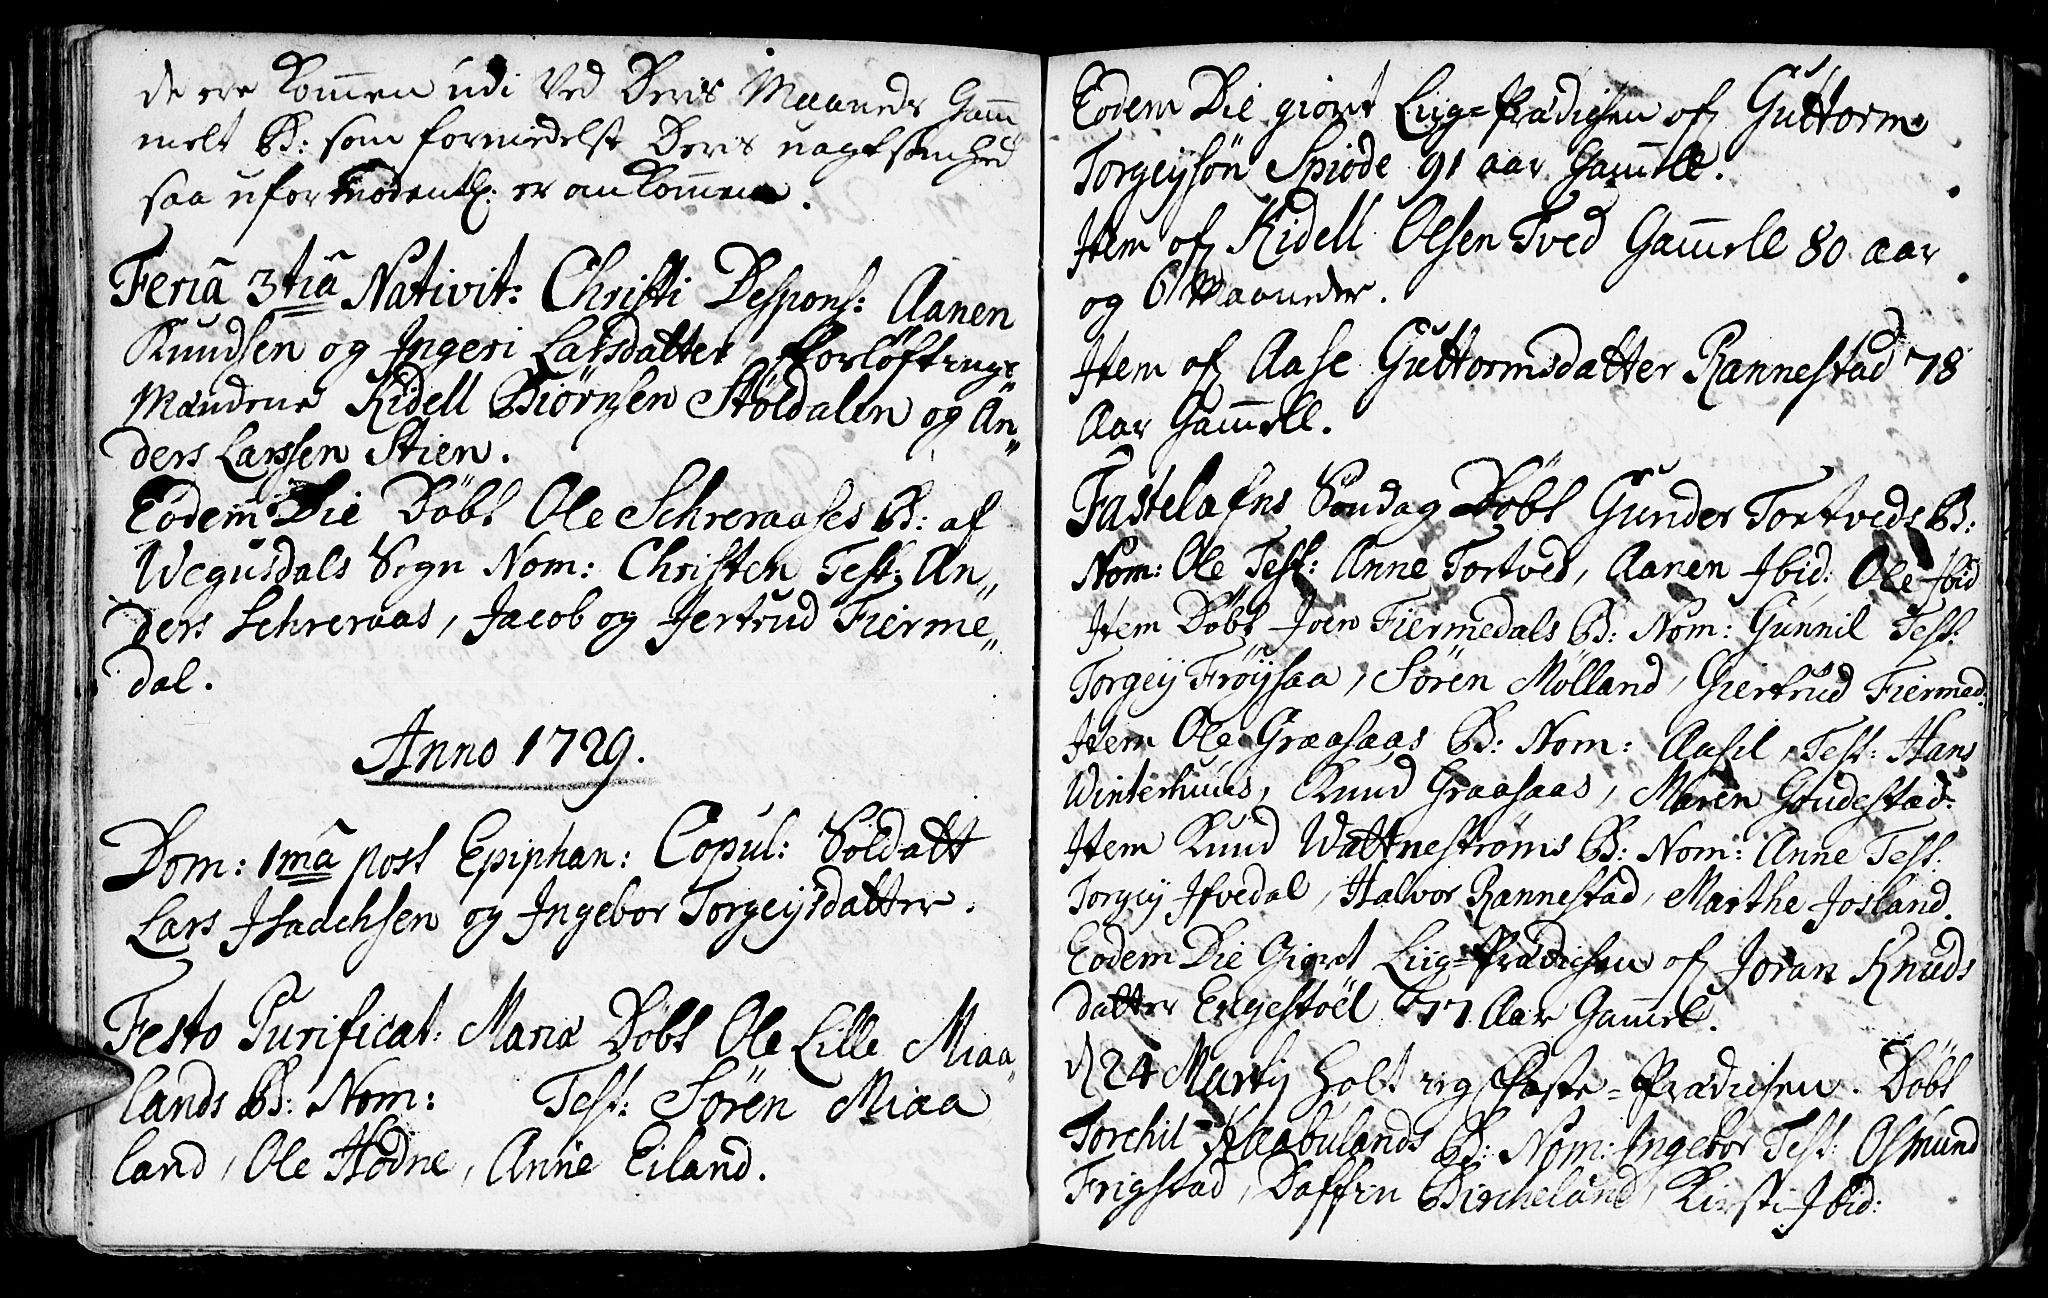 de ere Kommen udi Ved Deris Maaneds Gam
melt B: som formedelst Deris uagtsomhed
saa uformodentl: er omkommen.
Feriâ 3tiâ Nativit: Christi Despons: Aanen
Knudsen og Ingeri Larsdatter, Forløftnings
Mændene Kidell Biörnsen Stöldalen og An„
ders Larssen Stien.
Eodem Die Döbt Ole Schreraases B: af
Wegusdals Sogn Nom: Christen Test: An„
ders Schreraas, Jacob og Jertrud Fierme„
dal.
Anno 1729.
Dom: 1mâ post Epiphan: Copul: Soldatt
Lars Isaachsen og Ingebor Torgeijsdatter.
Festo Purificat: Mariæ Döbt Ole Lille Miaa„
lands B: Nom: Test: Sören Miaa
land, Ole Hodne, Anne Eiland.
Eodem Die giort Liig=Prædichen of Guttorm
Torgeysön Spiöde 91 aar Gammell.
Item of Kidell Olsen Tved Gammell 80 aar
og 6 Maaneder.
Item of Aase Guttormsdatter Rannestad 78
Aar Gammell.
Fastelafns Söndag Döbt Gunder Tortveds B:
Nom: Ole Test: Anne Tortved, Aanen Ibid: Ole Ibid
Item Döbt Joen Fiermedals B: Nom: Gunnil Test:
Torgeij Fröijsaa, Sören Mölland, Giertrud Fiermed:
Item Ole Graasaas B: Nom: Aasil, Test: Hans
Winterhuus, Knud Graasaas, Maren Goudestad:
Item Knud Wattneströms B: Nom: Anne Test:
Torgeij Ifvedal, Halvor Rannestad, Marthe Josland.
Eodem Die Giort Liig=Prædichen of Joran Knuds
datter Engestöel 77 Aar Gammel.
d 24 Martij holt ieg Faste=Prædichen. Döbt
Torchil Haabulands B: Nom: Ingebor Test: Osmund
Frigstad, Daffin Bircheland, Kirsti Ibid: